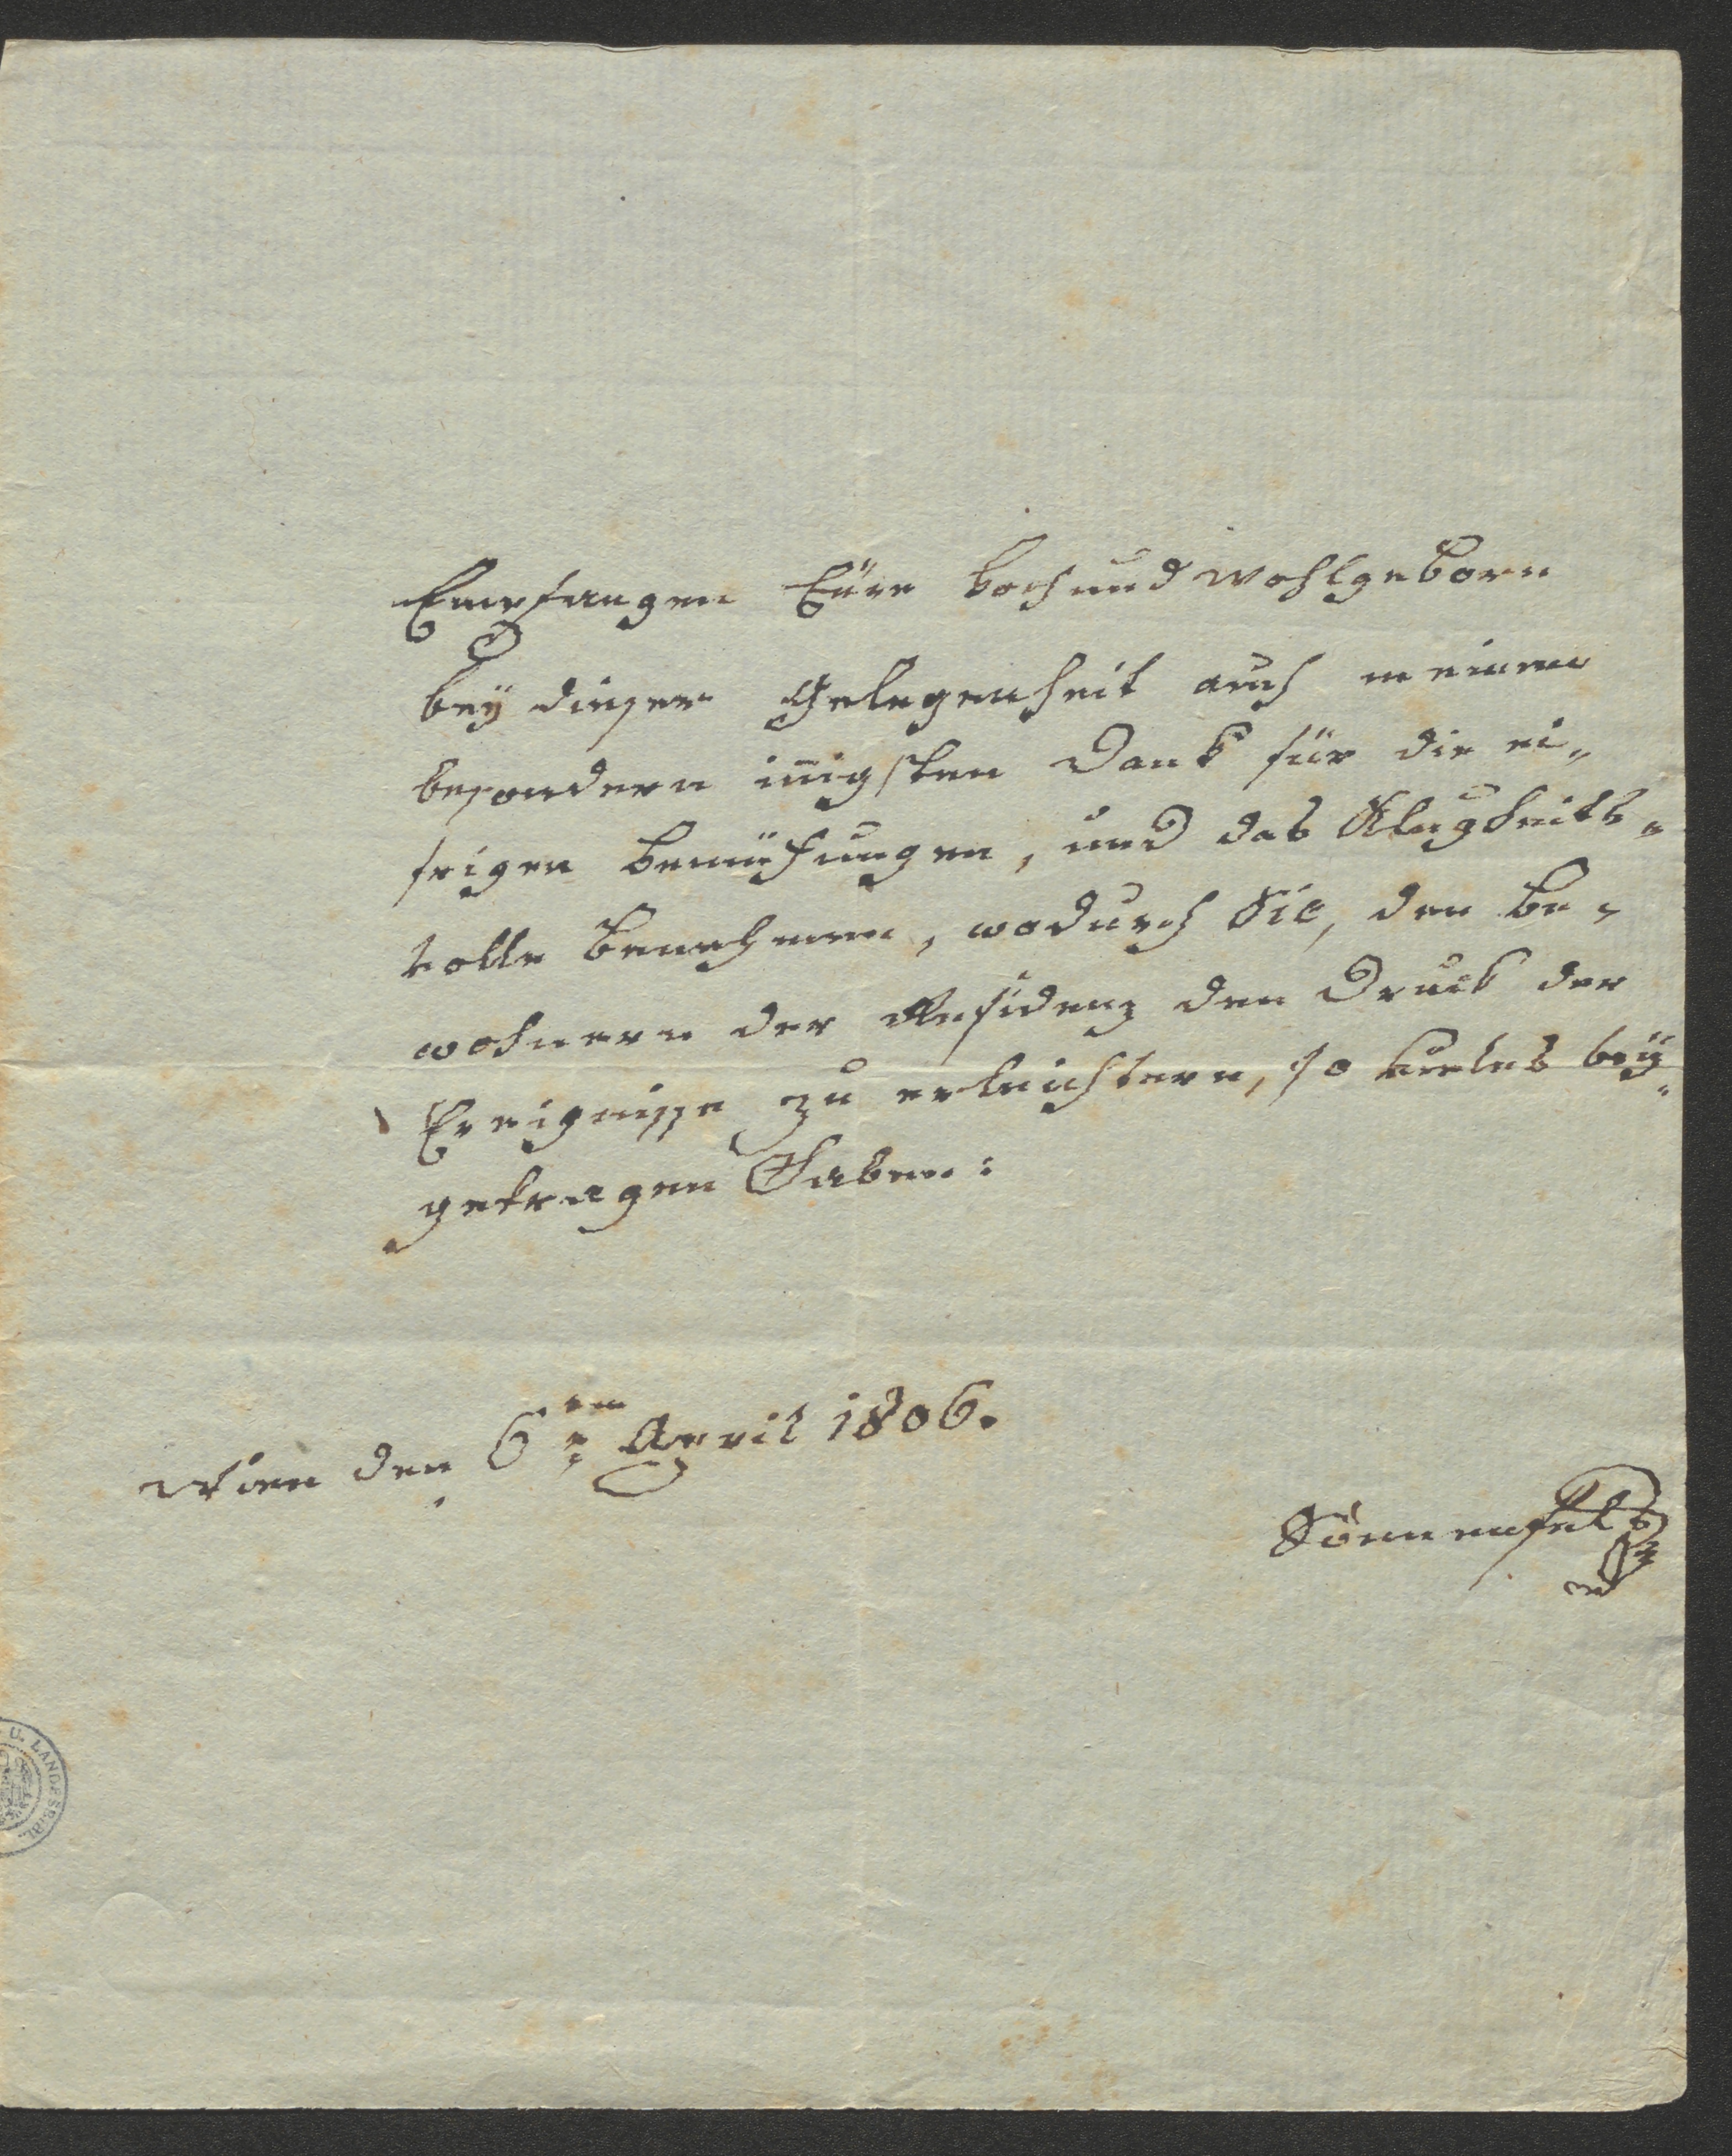 Empfangen Eüre hoch und wohlgeborn
bey dieser Gelegenheit auch meinen
besondern iñigsten Dank für die ei„
frigen Bemühungen, und das Klugheits„
volle Benehmen, wodurch Sie, den Be„
wohnern der Residenz den Druck der
Ereignisse zu erleichtern, so vieles bey„
getragen haben:
Wien den 6ten April 1806.
Sonnenfels
U. LANDESBIBL.